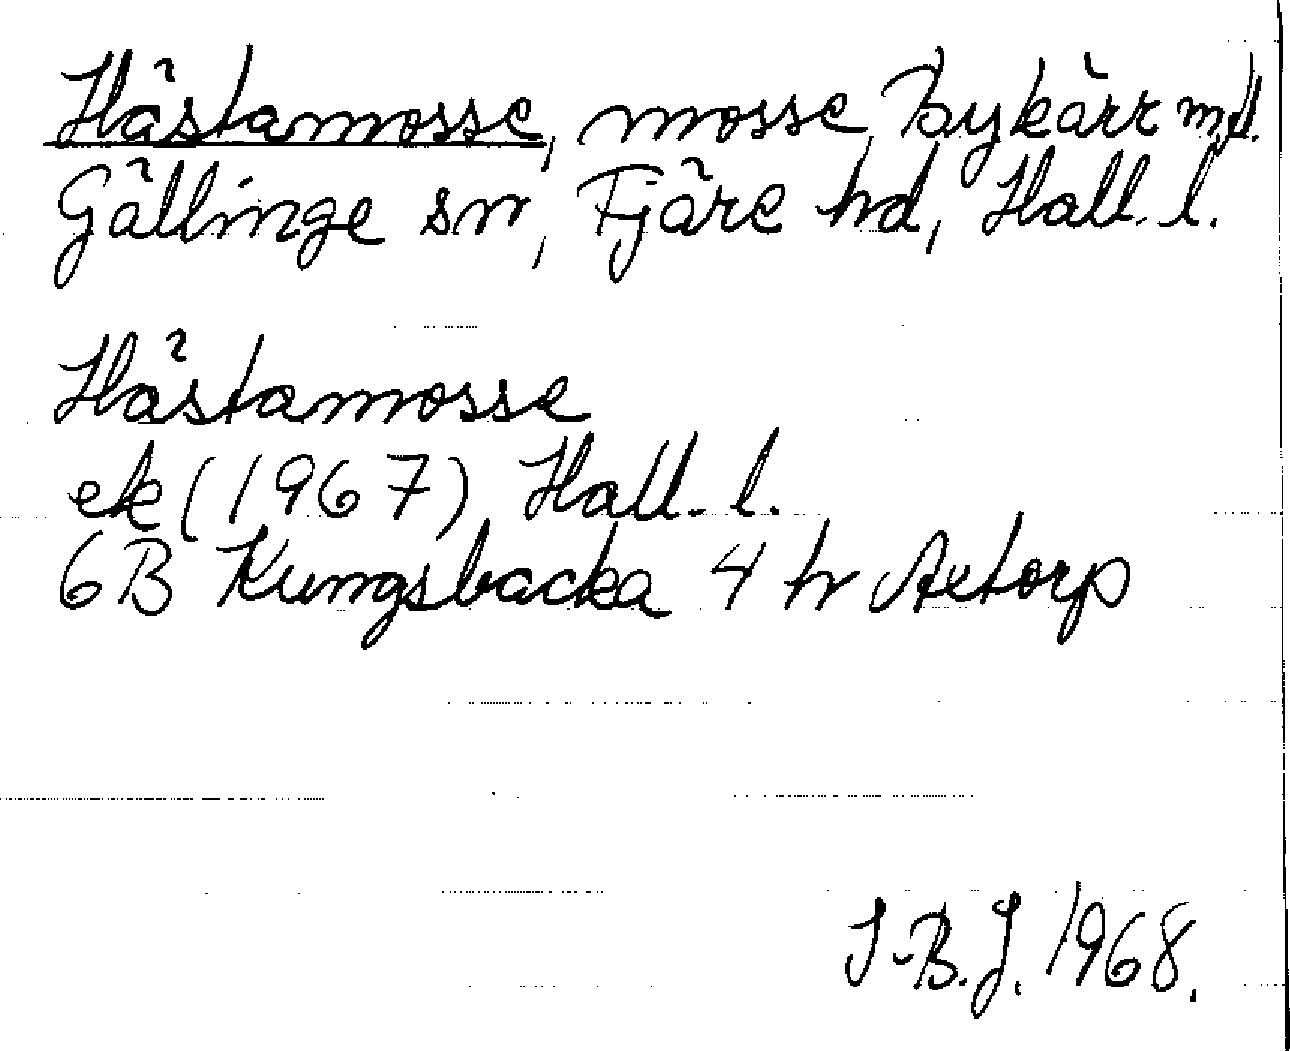 Hästamosse, mosse, Bykärr m.fl.
Gällinge sn, Fjäre hd, Hall. l.
Hästamosse
ek (1967) Hall. l.
6B Kungsbacka 4 h Axtorp
J-B.J. 1968.